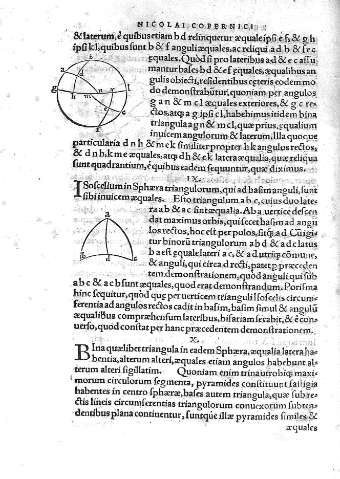 NICOLAI COPERNICI
& laterum, è quibus etiam b d relinquitur æqualis ipsi e f, & g h
ipsi k l, quibus sunt b & f anguli æquales, ac reliqui a d b & f e c
æquales. Quòd si pro lateribus a d & e c assu
mantur bases b d & e f æquales, æqualibus an
gulis obiecti, residentibus cæteris eodem mo
do demonstrabũtur, quoniam per angulos
g a n & m c l æquales exteriores, & g c re
ctos, atq; a g ipsi c l, habebimus itidem bina
triangula a g n & m c l, quæ prius, æqualium
inuicem angulorum & laterum, Illa quoque
particularia d n h & m e k similiter propter h k angulos rectos,
& d n h k m e æquales, atq; d h & e k latera æqualia, quæ reliqua
sunt quadrantium, è quibus eadem sequuntur, quæ diximus.
IX.
ISoscelium in Sphæra triangulorum, qui ad basim anguli, sunt
sibi inuicem æquales. Esto triangulum a b c, cuius duo late
ra a b & a c sint æqualia. Ab a uertice descen
dat maximus orbis, qui secet basim ad angu
los rectos, hoc est per polos, sitq; a d. Cũ igi
tur binorũ triangulorum a b d & a d c latus
b a est æquale lateri a c, & a d utriq; cõmune,
& anguli, qui circa d recti, patet p præceden
tem demonstrationem, quòd anguli qui sub
a b c & a c b sunt æquales, quod erat demonstrandum. Porisma
hinc sequitur, quòd quæ per uerticem trianguli Isoscelis circum
ferentia ad angulos rectos cadit in basim, basim simul & angulũ
æqualibus compræhensum lateribus, bifariam secabit, & è con
uerso, quod constat per hanc præcedentem demonstrationem.
X.
BIna quælibet triangula in eadem Sphæra, æqualia latera ha-
bentia, alterum alteri, æquales etiam angulos habebunt al-
terum alteri sigillatim. Quoniam enim trina utrobiq; maxi-
morum circulorum segmenta, pyramides constituunt fastigia
habentes in centro sphæræ, bases autem triangula, quæ sub re-
ctis lineis circumferentias triangulorum conuexorum subten-
dentibus plana continentur, suntque illæ pyramides similes &
æquales